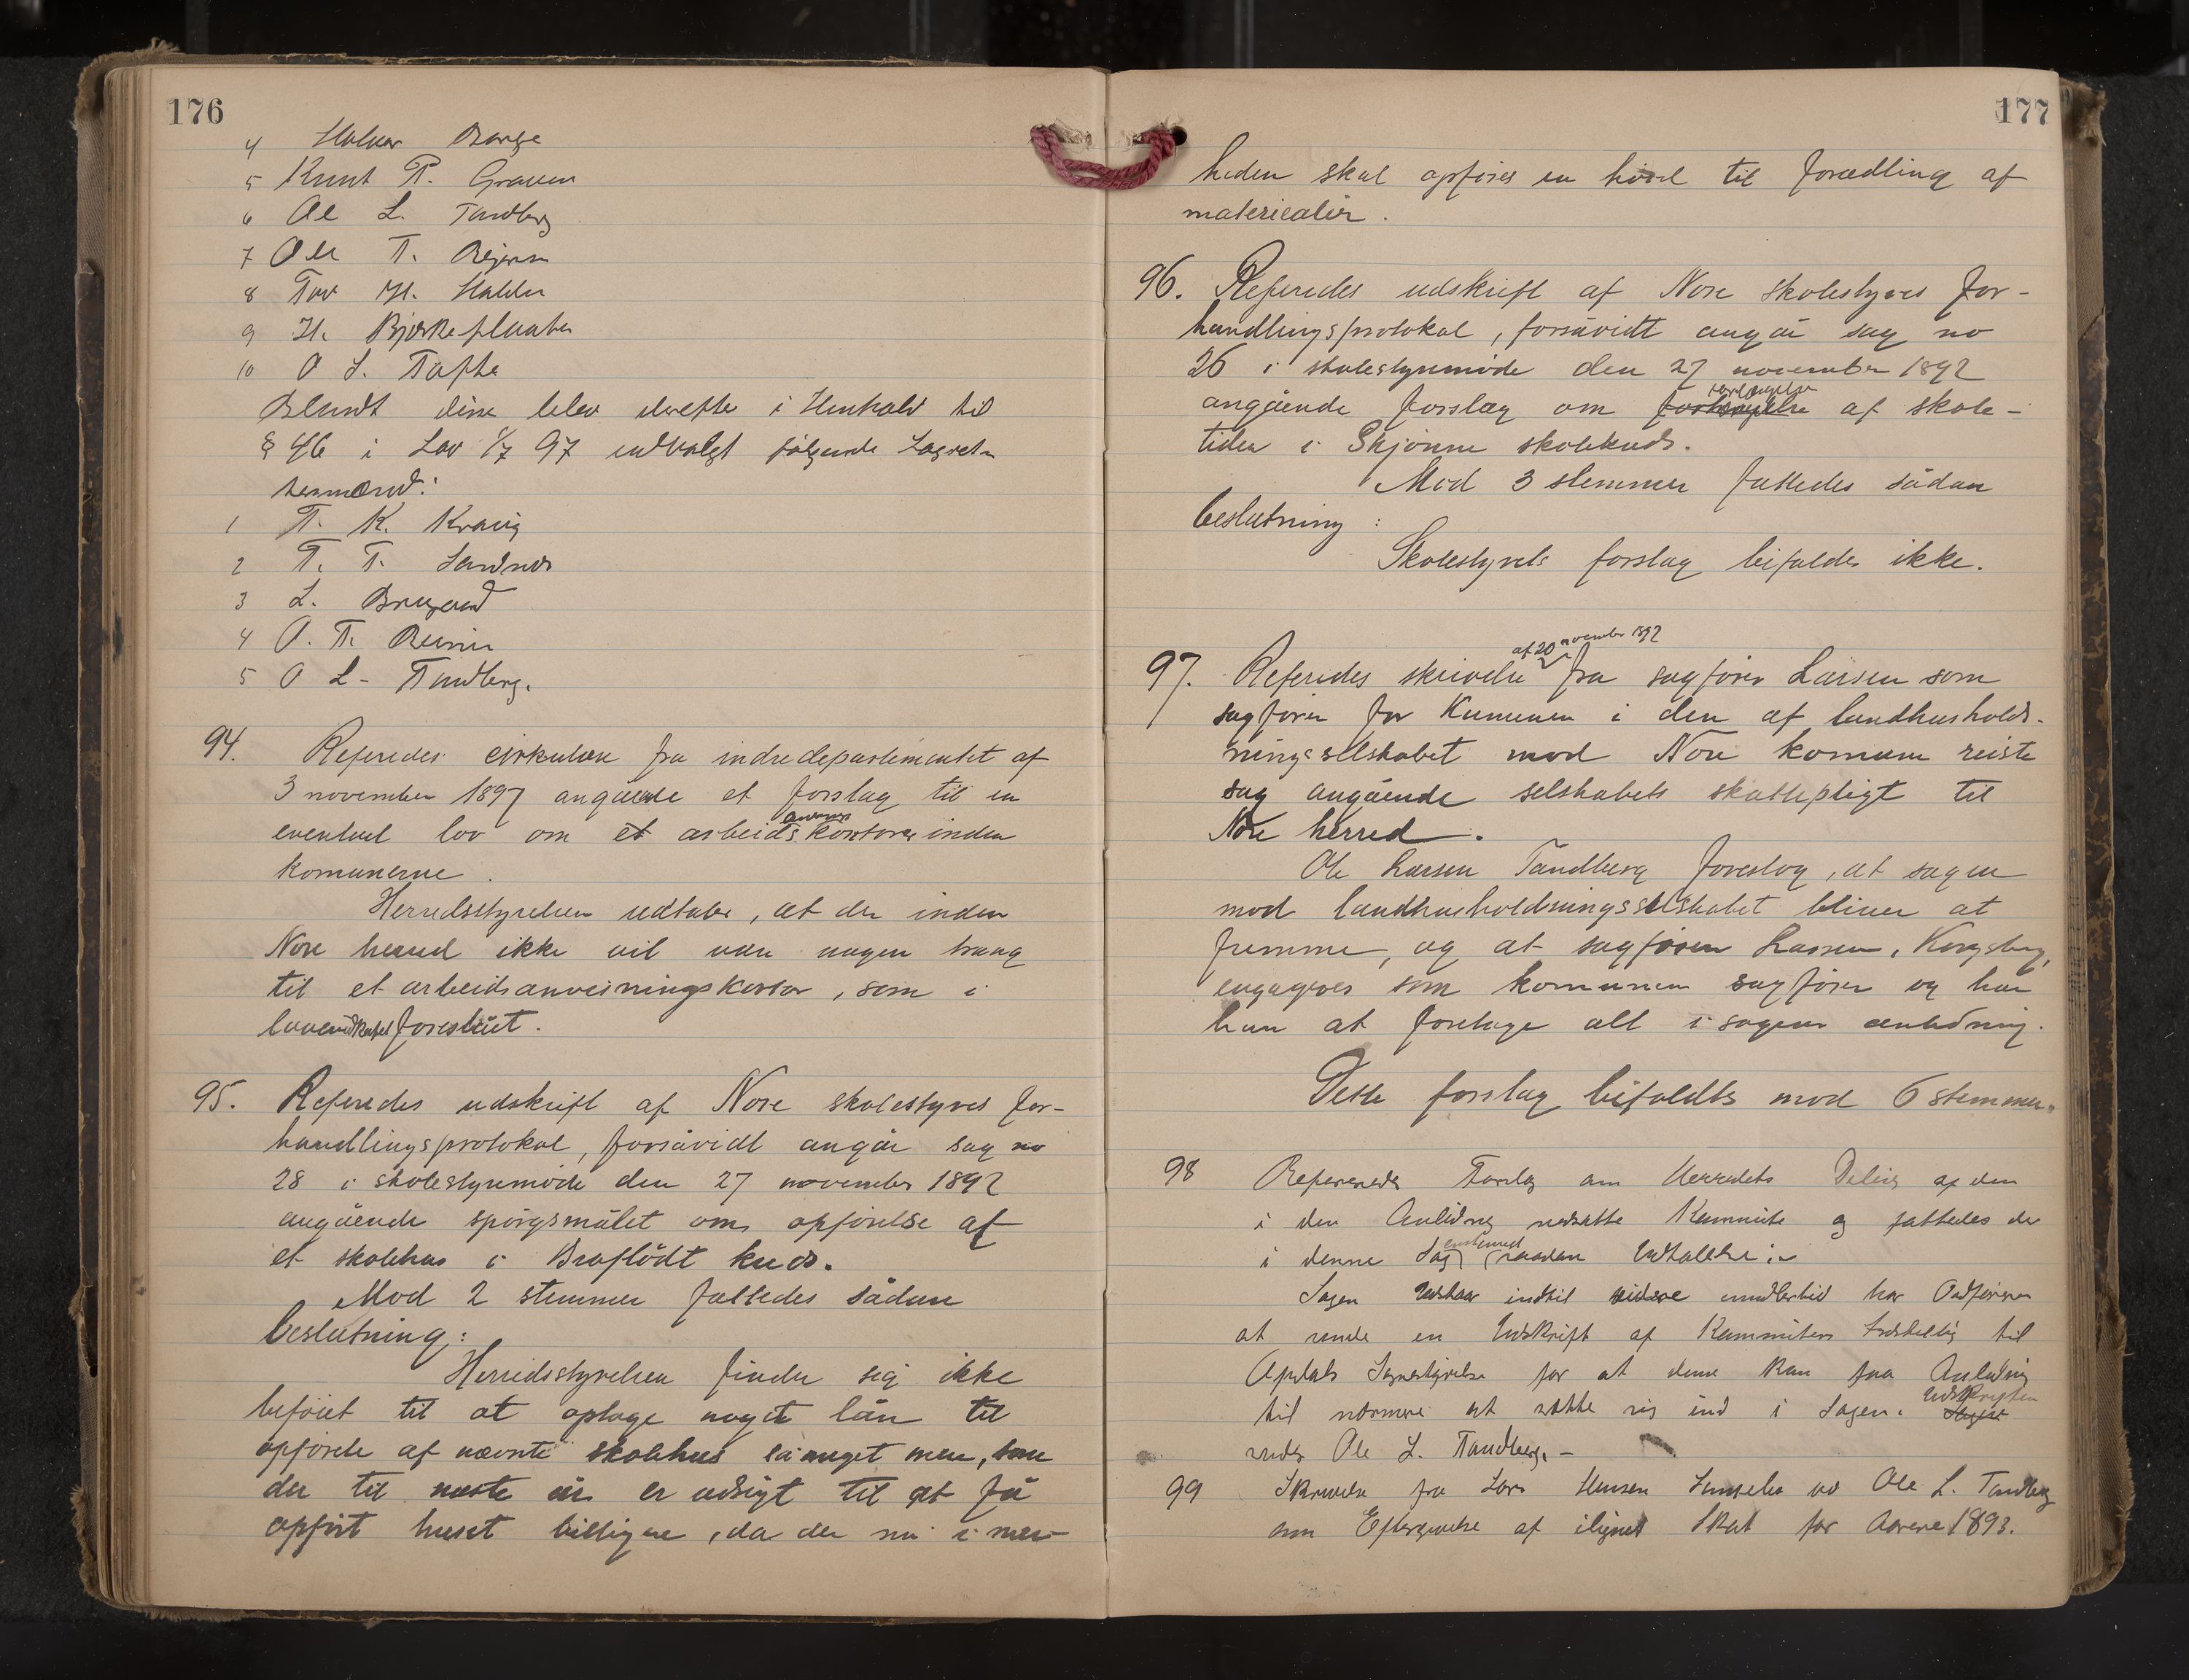 176
4 Halvor Borge
5 Knut P. Graven
6 Ole L. Tandberg
7 Ole T.
8 Tov H. Halden
9 H. Bjørkeflaaten
10 O L. Tofte
Blandt disse blev derefter i Henhold til
§ 46 i Lov 1/7 97 udvalgt følgende Lagrets
mænd:
1 T. K. Kravig
2 T. T. Sandnes
3 L.
4 O. T.
5 O L. Tandberg.
94. Referedes cirkulære fra indredepartementet af
3 november 1897 angående et forslag til en
eventuel lov om et arbeidsanvisnings kontorer inden
komunerne.
Herredsstyrelsen udtaler, at der inden
Nore herred ikke vil være nogen trang
til et arbeidsanvisningskontor, som i
lovendkastet foreslået.
95. Referedes udskrift af Nore skolestyres for-
handlingsprotokol, forsåvidt angår sag no
28 i skolestyremøde den 27 november 1892
angående spørgsmålet om opførelse af
et skolehus i Braflödt kreds.
Mod 2 stemmer fattedes sådan
beslutning:
Herredsstyrelsen finder sig ikke
beføiet til at optage noget lån til
opførelse af nævnte skolehus så meget mere, som
der til næste år er udsigt til at få
opført huset billigere, da der nu i nær-
177
heden skal opføres en høvel til forædling af
materialier.
96. Referedes udskrift af Nore skolestyres for-
handlingsprotokol, forsåvidt angår sag no
26 i skolestyremøde den 27 november 1892
angående forslag om forlængelse af skole-
tiden i Skjönne skolekreds.
Mod 3 stemmer fattedes sådan
beslutning:
Skolestyrets forslag bifaldes ikke.
97. Referedes skrivelse af 20 november 1892 fra sagfører Larsen som
sagfører for Kumunen i den af landhushold-
ningsselskabet mod Nore komune reiste
sag angående selskabets skattepligt til
Nore herred.
Ole Larsen Tandberg foreslog, at sagen
mod landhusholdningsselskabet bliver at
fremme, og at sagfører Larssen, Kongsberg,
engageres som komunens sagfører og har
han at foretage alt i sagens anledning.
Dette forslag bifaldtes mod 6 stemmer.
98 Refereredes Forslag om Herredets Deling af den
i den Anledning nedsatte Kommite og fattedes der
i denne Sag enstemmig saadan Udtalelse:
Sagen Udstaar indtil videre imidlertid har Ordføreren
at sende en Udskrift af Kommiteens Indstilling til
Opdals Sognestyrelse for at denne kan faa Anledning
til nærmere at sætte sig ind i Sagen. Udskriften
sendes Ole L. Tandberg.
99 Skrivelse fra Lars Hansen ved Ole L. Tandberg
om Eftergivelse af ilignet Skat for Aarene 1893.